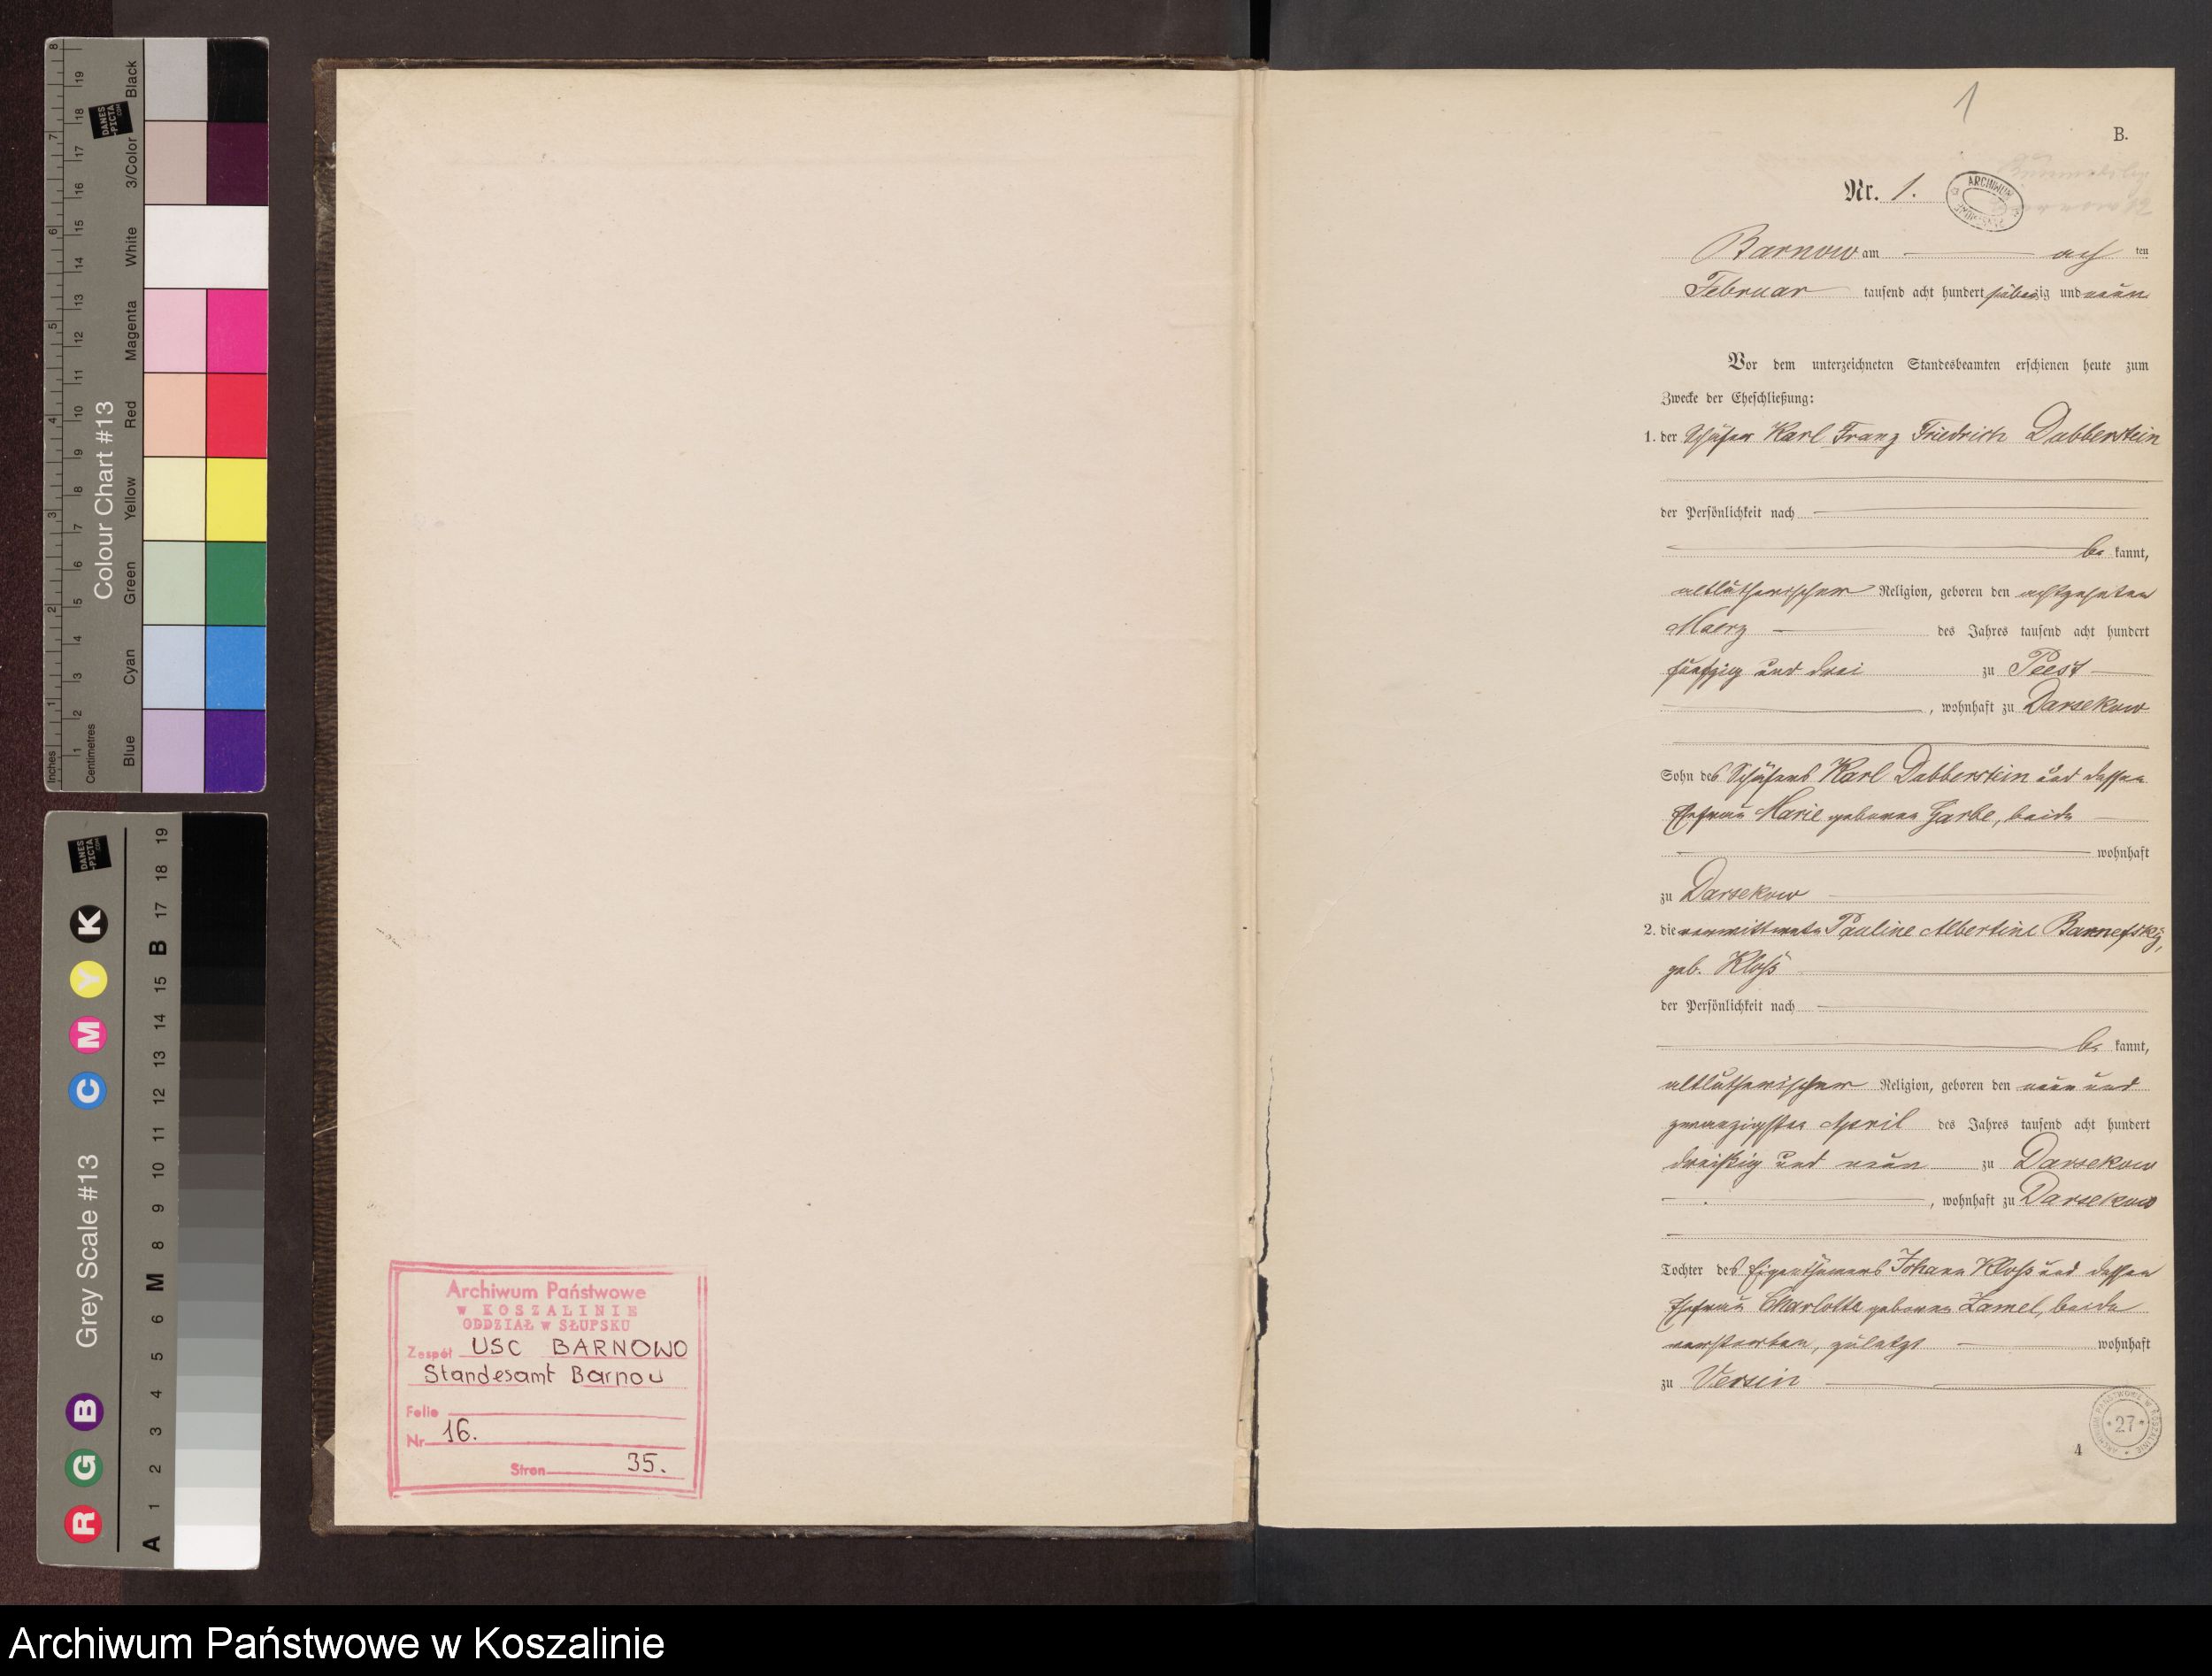 8
7
6
5
4
3
2
1
Inches
19
18
17
16
15
14
13
12
11
10
9
8
7
6
5
4
3
2
1
Centimetres
DANES
-PICTA
.COM
Colour Chart #13
Black
3/Color
White
Magenta
Red
Yellow
Green
Cyan
Blue
DANES
-PICTA
.COM
Grey Scale #13
R G B
C M Y K
A 1 2 3 4 5 6 M 8 9 10 11 12 13 14 15 B 17 18 19
Archiwum Państwowe
w KOSZALINIE
ODDZIAŁ w SŁUPSKU
Zespół USC BARNOWO
Standesamt Barnow
Folio
Nr 16.
Stron 35.
1
B.
Nr. 1.
ARCHIWUM
Barnow am acht ten
Februar tausend acht hundert siebenzig und neun
Vor dem unterzeichneten Standesbeamten erschienen heute zum
Zwecke der Eheschließung:
1. der Schäfer Karl Franz Friedrich Dabberstein
der Persönlichkeit nach
be kannt,
altlutherischer Religion, geboren den achtzehnten
Maerz des Jahres tausend acht hundert
fünfzig und drei zu Peest
, wohnhaft zu Darsekow
Sohn des Schäfers Karl Dabberstein und dessen
Ehefrau Marie geborne Garbe, beide
wohnhaft
zu Darsekow
2. die verwittwete Pauline Albertine
geb. Kloß
der Persönlichkeit nach
be kannt,
altlutherischer Religion, geboren den neun und
zwanzigsten April des Jahres tausend acht hundert
dreißig und neun zu Darsekow
, wohnhaft zu Darsekow
Tochter des Eigenthümers Johann Kloß und dessen
Ehefrau Charlotte geborne Zamel, beide
verstorben, zuletzt wohnhaft
zu Versin
ARCHIWUM PAŃSTWOWE W KOSZALINIE
* 27 *
4
Archiwum Państwowe w Koszalinie